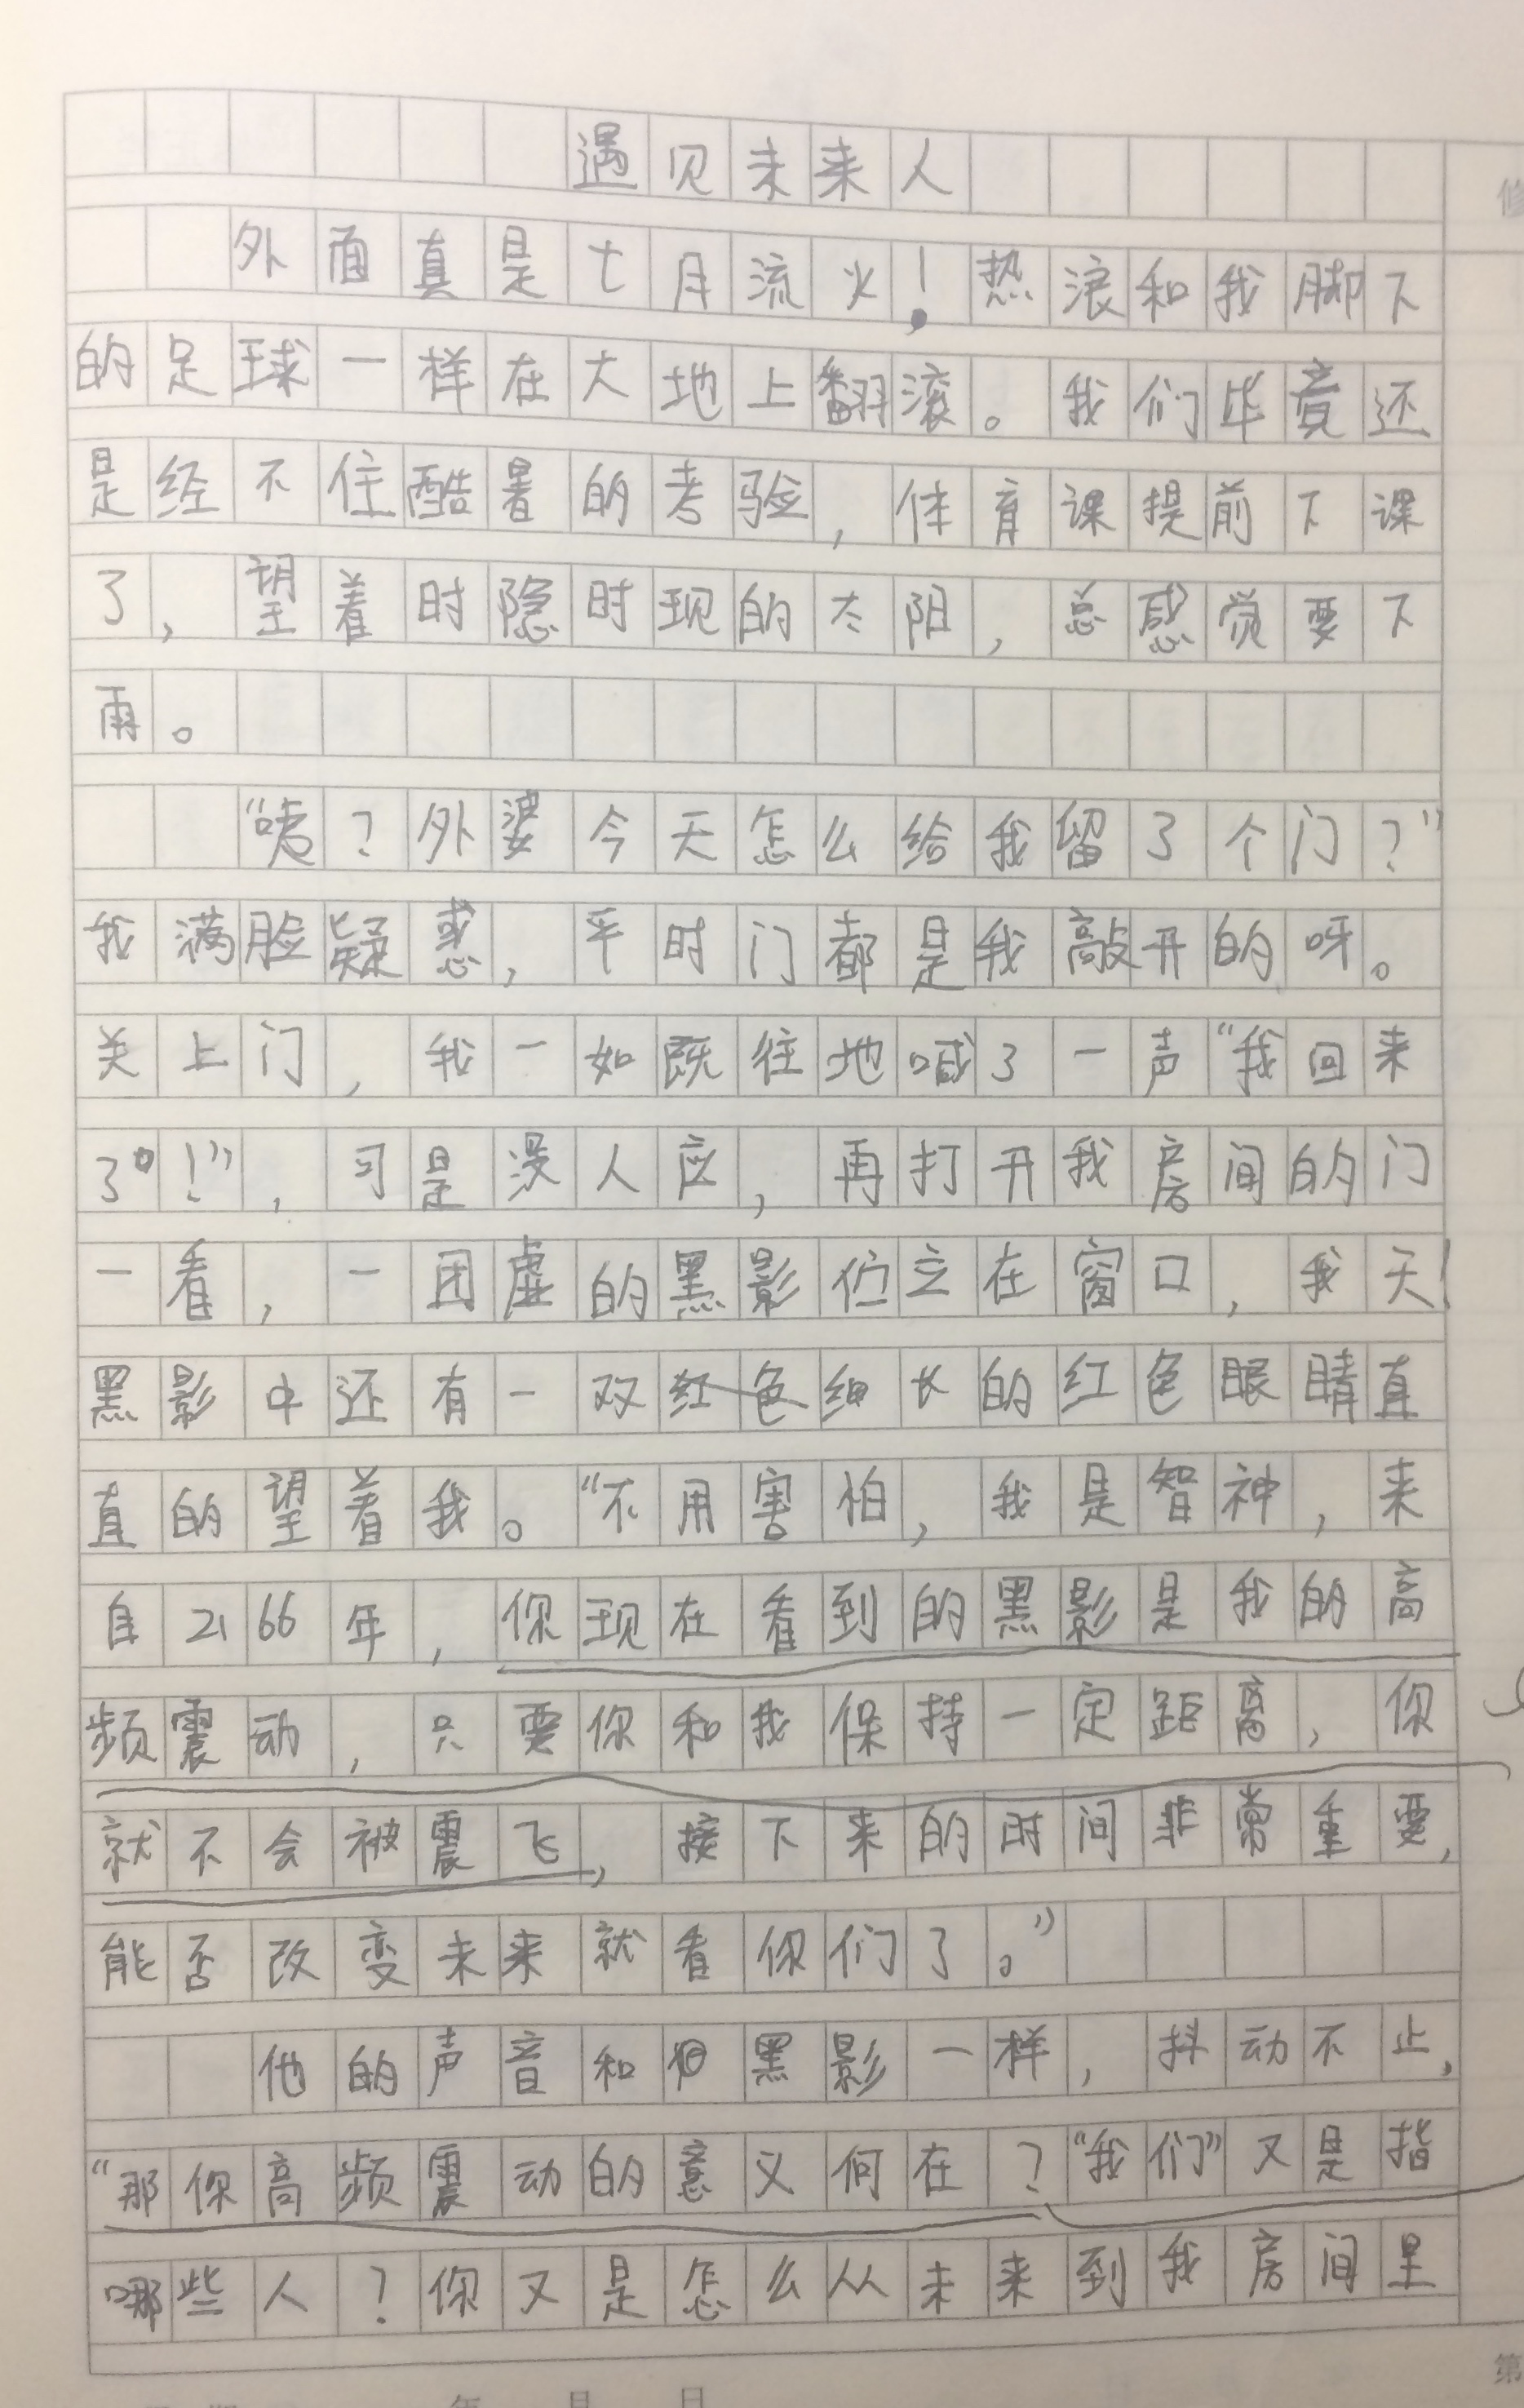 遇见未来人
外面真是七月流火!热浪和我脚下
的足球一样在大地上翻滚。我们毕竟还
是经不住酷暑的考验,体育课提前下课
了,望着时隐时现的太阳,总感觉要下
雨。
“咦?外婆今天怎么给我留了个门?”
我满脸疑惑,平时门都是我敲开的呀。
关上门,我一如既往地喊了一声“我回来
了!”,可是没人应,再打开我房间的门
一看,一团虚的黑影伫立在窗口,我天!
黑影中还有一双细长的红色眼睛直
直的望着我。“不用害怕,我是智神,来
自2166年,你现在看到的黑影是我的高
频震动,只要你和我保持一定距离,你
就不会被震飞,接下来的时间非常重要,
能否改变未来就看你们了。”
他的声音和黑影一样,抖动不止,
“那你高频震动的意义何在?“我们”又是指
哪些人?你又是怎么从未来到我房间里
年 月 日
第
修